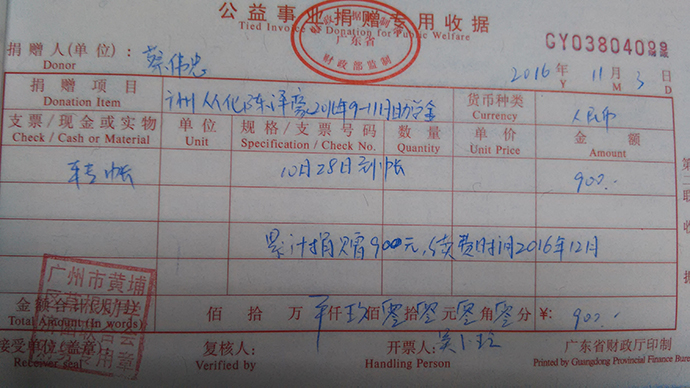 公益事业捐赠专用收据
Tied Invoice Donation for Public Welfare
广东省
财政部监制
GY03804088
捐赠人(单位): 蔡伟忠
Donor
2016 年 11 月 3 日
Y M D
捐赠项目 从化陈泽豪2016年9-11月助学金 货币种类 人民币
Donation Item Currency
支票/现金或实物 单位 规格/支票号码 数量 单价 金额
Check / Cash or Material Unit Specification / Check No. Quantity Unit Price Amount
转帐 10月28日到帐 900.-
累计捐赠900元,续费时间2016年12月
第二联 收
广州市黄埔
金额合计(大写) 佰 拾 万 仟 玖 佰 零 拾 零 元 零 角 零 分 ¥: 900.-
Total Amount (in words)
接受单位(盖章) 复核人: 开票人: 广东省财政厅印制
Receiver seal Verified by Handling Person Printed by Guangdong Provincial Finance Bureau
专用章